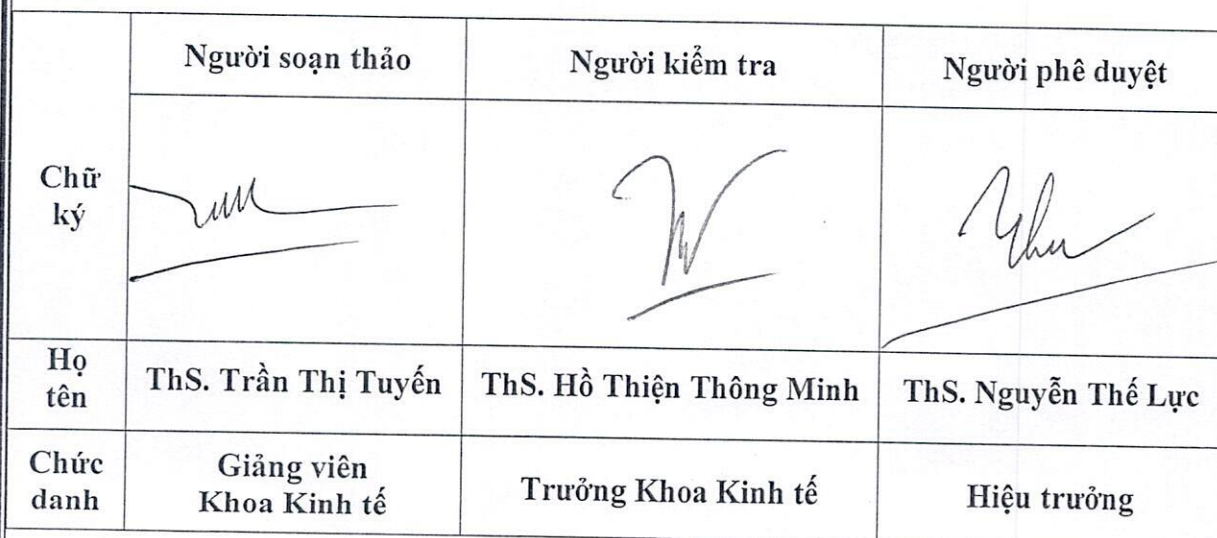 Người soạn thảo
Người kiểm tra
Người phê duyệt
Chữ
ký
Họ
tên
ThS. Trần Thị Tuyến
ThS. Hồ Thiện Thông Minh
ThS. Nguyễn Thế Lực
Chức
danh
Giảng viên
Khoa Kinh tế
Trưởng Khoa Kinh tế
Hiệu trưởng